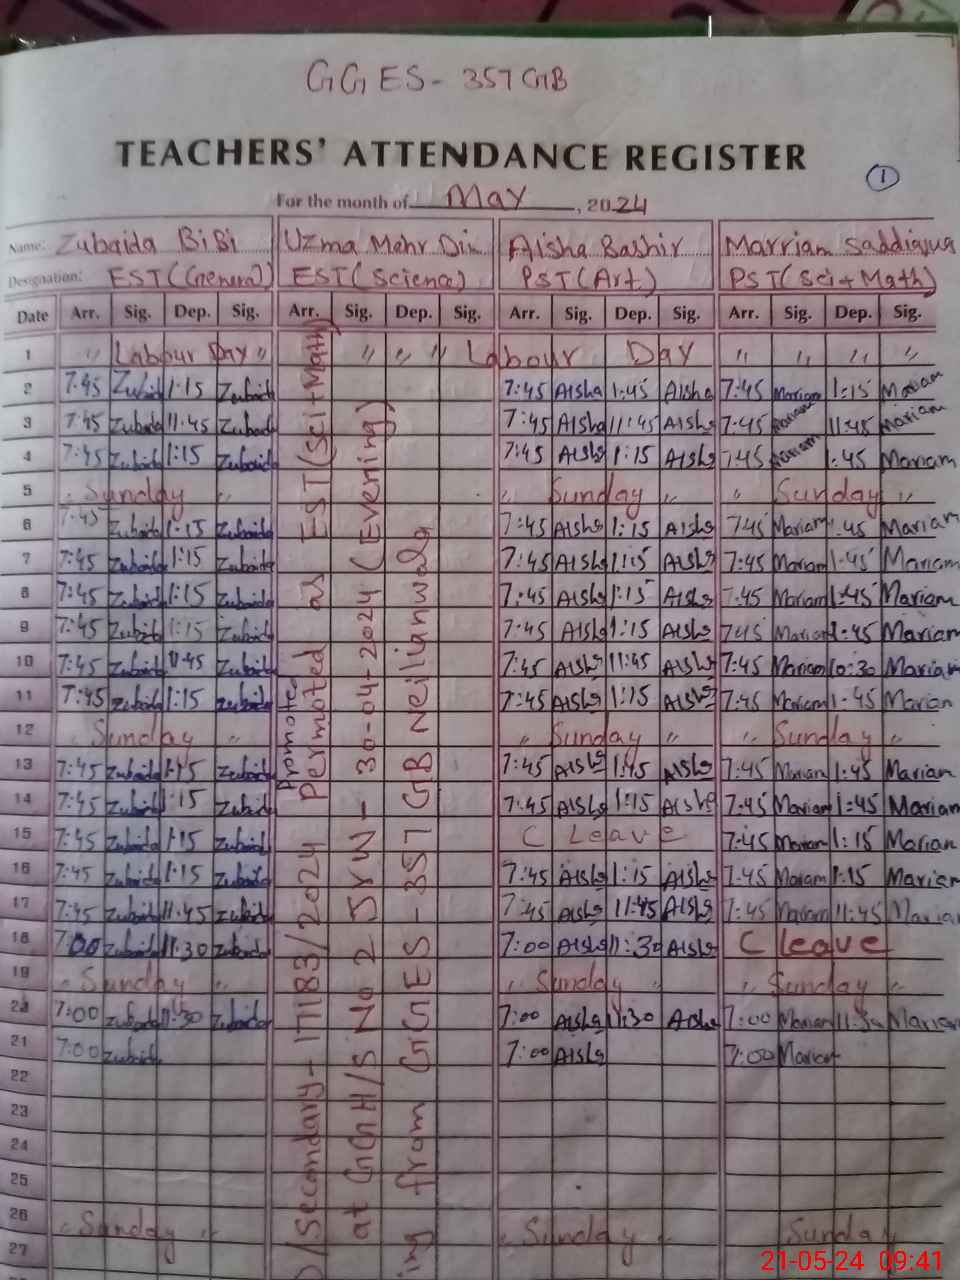 GGES- 357 GB
TEACHERS' ATTENDANCE REGISTER
1
For the month of May, 2024
Name: Zubaida BiBi Uzma Mehr Din Aisha Bashir Marriam Saddiqua
Designation: EST(General) EST(Science) PST(Art) PST(Sci+Math)
Date Arr. Sig. Dep. Sig. Arr. Sig. Dep. Sig. Arr. Sig. Dep. Sig. Arr. Sig. Dep. Sig.
1 " Labour Day " " " " Labour Day " " " "
2 7:45 Zubaid 1:15 Zubaid 7:45 Aisha 1:45 Aisha 7:45 Mariam 1:15 Mariam
3 7:45 Zubaid 11:45 Zubaid 7:45 Aisha 11:45 Aisha 7:45 Mariam 11:45 Mariam
4 7:45 Zubaid 1:15 Zubaid 7:45 Aisha 1:15 Aisha 7:45 Mariam 1:45 Mariam
5 " Sunday " " Sunday " " Sunday "
6 7:45 Zubaid 1:15 Zubaid 7:45 Aisha 1:15 Aisha 7:45 Mariam 1:45 Mariam
7 7:45 Zubaid 1:15 Zubaid 7:45 Aisha 1:15 Aisha 7:45 Mariam 1:45 Mariam
8 7:45 Zubaid 1:15 Zubaid 7:45 Aisha 1:15 Aisha 7:45 Mariam 1:45 Mariam
9 7:45 Zubaid 1:15 Zubaid 7:45 Aisha 1:15 Aisha 7:45 Mariam 1:45 Mariam
10 7:45 Zubaid 11:45 Zubaid 7:45 Aisha 11:45 Aisha 7:45 Mariam 10:30 Mariam
11 7:45 Zubaid 1:15 Zubaid 7:45 Aisha 1:15 Aisha 7:45 Mariam 1:45 Mariam
12 " Sunday " " Sunday " " Sunday "
13 7:45 Zubaid 1:15 Zubaid 7:45 Aisha 1:45 Aisha 7:45 Mariam 1:45 Mariam
14 7:45 Zubaid 1:15 Zubaid 7:45 Aisha 1:15 Aisha 7:45 Mariam 1:45 Mariam
15 7:45 Zubaid 1:15 Zubaid C Leave 7:45 Mariam 1:15 Mariam
16 7:45 Zubaid 1:15 Zubaid 7:45 Aisha 1:15 Aisha 7:45 Mariam 1:15 Mariam
17 7:45 Zubaid 11:45 Zubaid 7:45 Aisha 11:45 Aisha 7:45 Mariam 11:45 Mariam
18 7:00 Zubaid 11:30 Zubaid 7:00 Aisha 11:30 Aisha C leave
19 " Sunday " " Sunday " " Sunday "
20 7:00 Zubaid 11:30 Zubaid 7:00 Aisha 11:30 Aisha 7:00 Mariam 11:30 Mariam
21 7:00 Zubaid 7:00 Aisha 7:00 Mariam
22
23
24
25
26 " Sunday " " Sunday " Sunday
27
/Secondary- 17183/2024 Permoted as EST(Sci+Math)
Promote
at GGH/S No 2 JRW- 30-04-2024 (Evening)
ing from GGES -357 GB Neilianwala
21-05-24 09:41